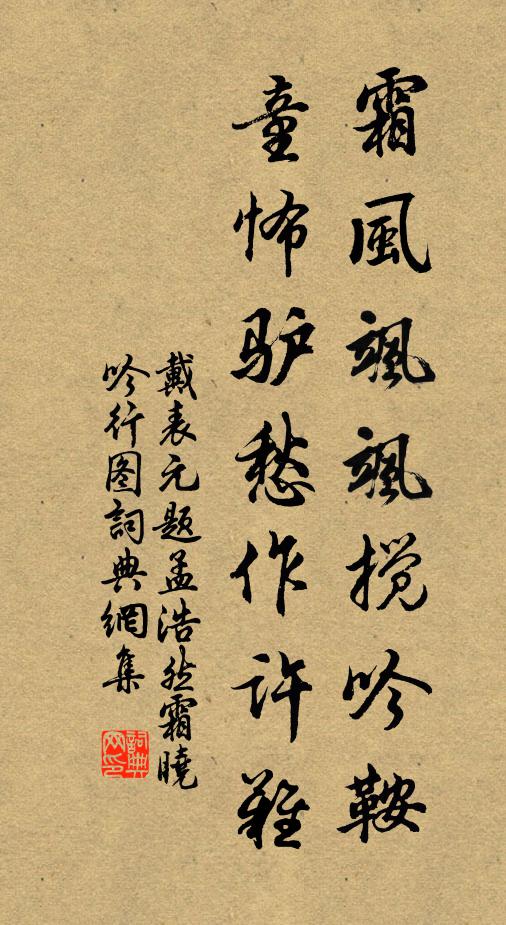 霜風颯颯搅吟鞍
童怖驴愁作许難
戴表元题孟浩然霜曉
吟行图詞典網集
詞典网印